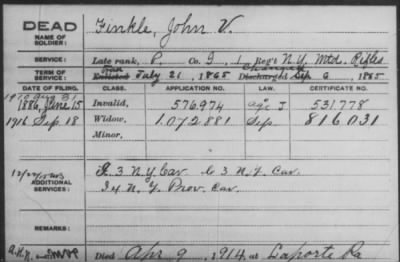 DEAD
NAME OF SOLDIER: Finkle, John V.
SERVICE: Late rank, P. Co. G, 1 Reg't N.Y. Mtd. Rifles
TERM OF SERVICE: Enlisted July 21, 1865 Discharged Sep 6, 1865
DATE OF FILING. CLASS. APPLICATION NO. LAW. CERTIFICATE NO.
1886, June 15 Invalid, 576974 J 531778
1916 Sep. 18 Widow, 1.072.881 Sep 816031
Minor,
ADDITIONAL SERVICES: 3 N.Y. Cav. C 3 N.Y. Cav.
4 N.Y. Prov. Cav.
REMARKS:
Died Apr 9, 1914, at Laporte Pa